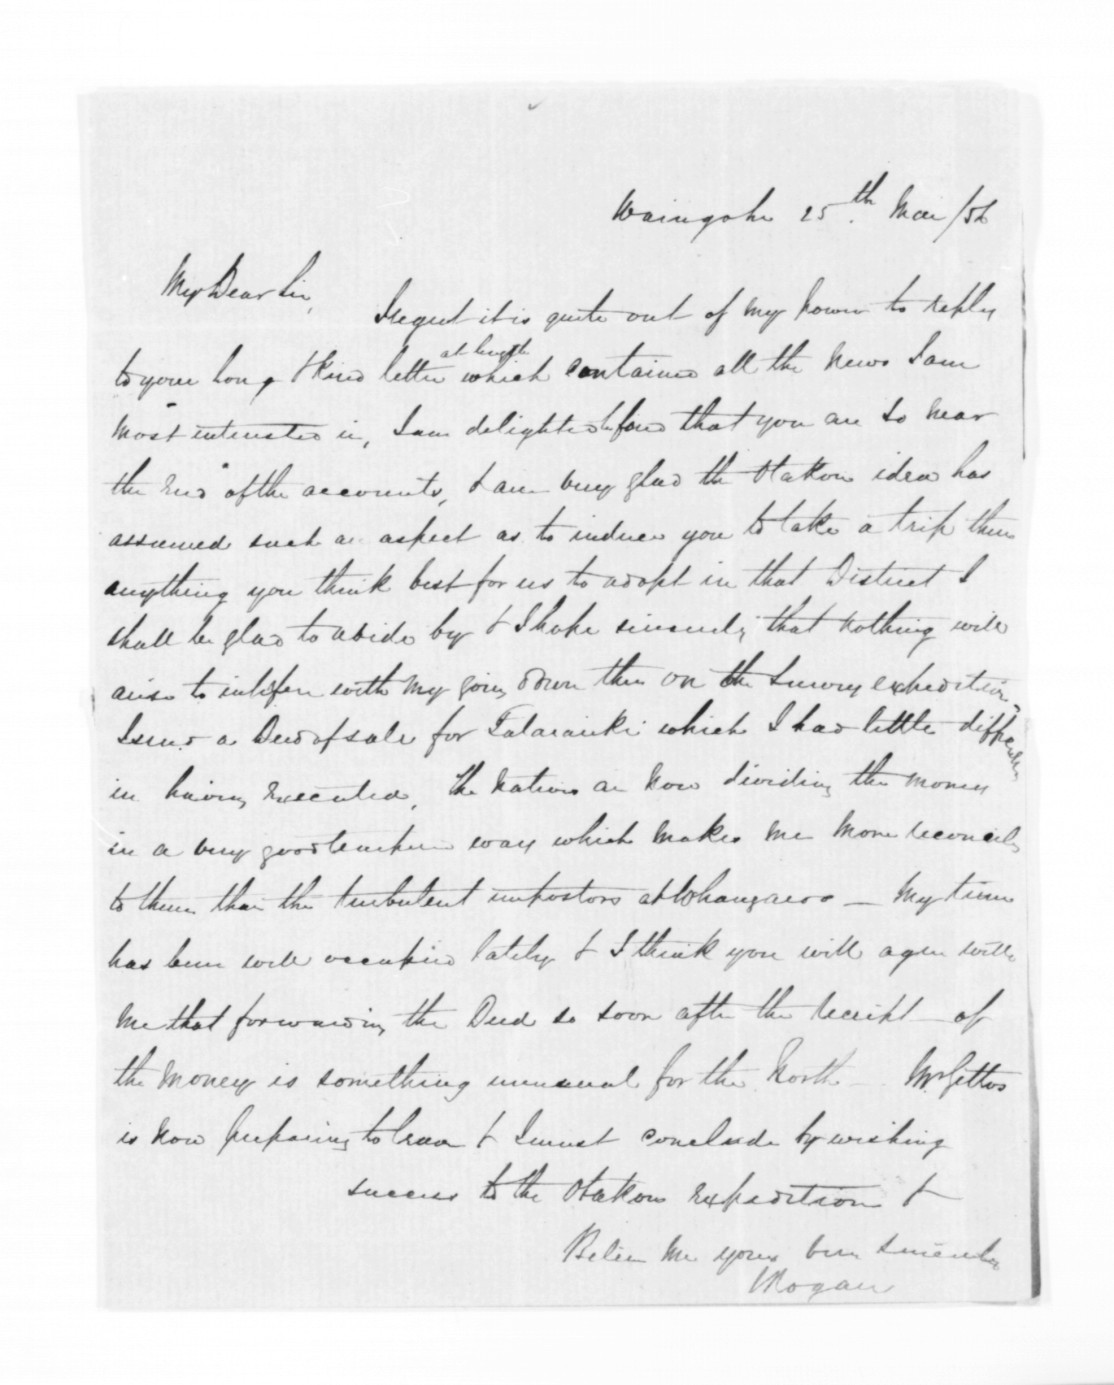 Waingohe 25.th Mar/56
My Dear Sir,
I regret it is quite out of my power to reply
at length
to your long & kind letter which contained all the news I am
most interested in, I am delighted to find that you are so near
the end of the accounts, & am very glad the Otakou idea has
assumed such an aspect as to induce you to take a trip there
anything you think best for us to adopt in that District I
shall be glad to abide by & I hope sincerely that nothing will
arise to interfere with my going down there on the survey expedition,
I send a Deed of sale for Tataraiki which I had little difficulty
in having executed, The natives are now dividing the money
in a very good tempered way which makes me more reconciled
to them than the turbulent impostors at Whangaroa — My time
has been well occupied lately & I think you will agree with
me that forwarding the Deed so soon after the receipt of
the money is something unusual for the North — Mr Gittos
is now preparing to leave & I must conclude by wishing
success to the Otakou Expedition &
Believe me yours very sincerely
Rogan